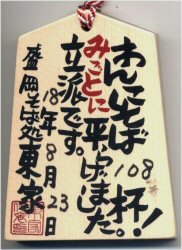 わんこそば108杯！
みごとに平らげました。
立派です。
18年8月23日
盛岡そば処東家